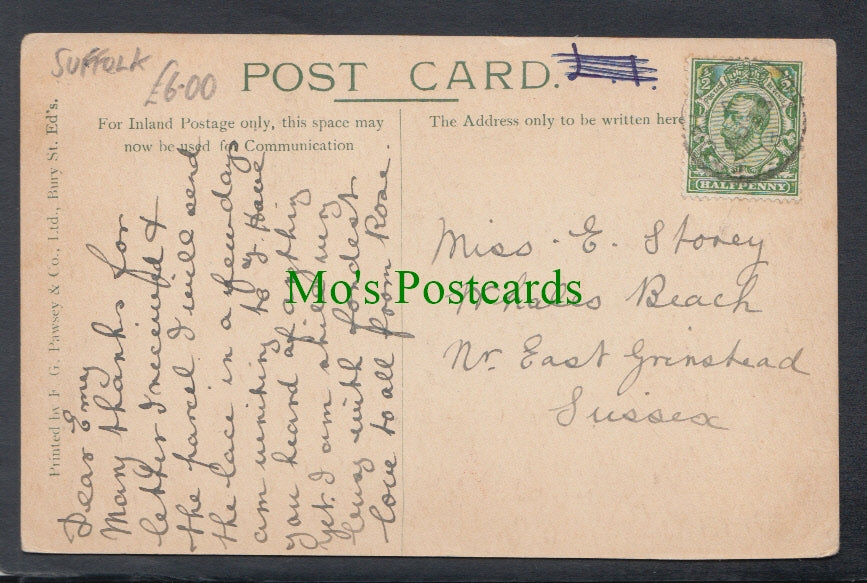 SUFFOLK
£6.00
POST CARD.
For Inland Postage only, this space may
now be used for Communication
The Address only to be written here
HALFPENNY
Printed by F. G. Pawsey & Co., Ltd., Bury St. Ed's.
Dear Emy
Many thanks for
letter I received &
the parcel I will send
the lace in a few days
am writing to y. Have
you heard of anything
yet. I am still very
busy with fondest
love to all from Rose.
Miss. E. Storey
Beach
Nr. East Grinstead
Sussex
Mo's Postcards